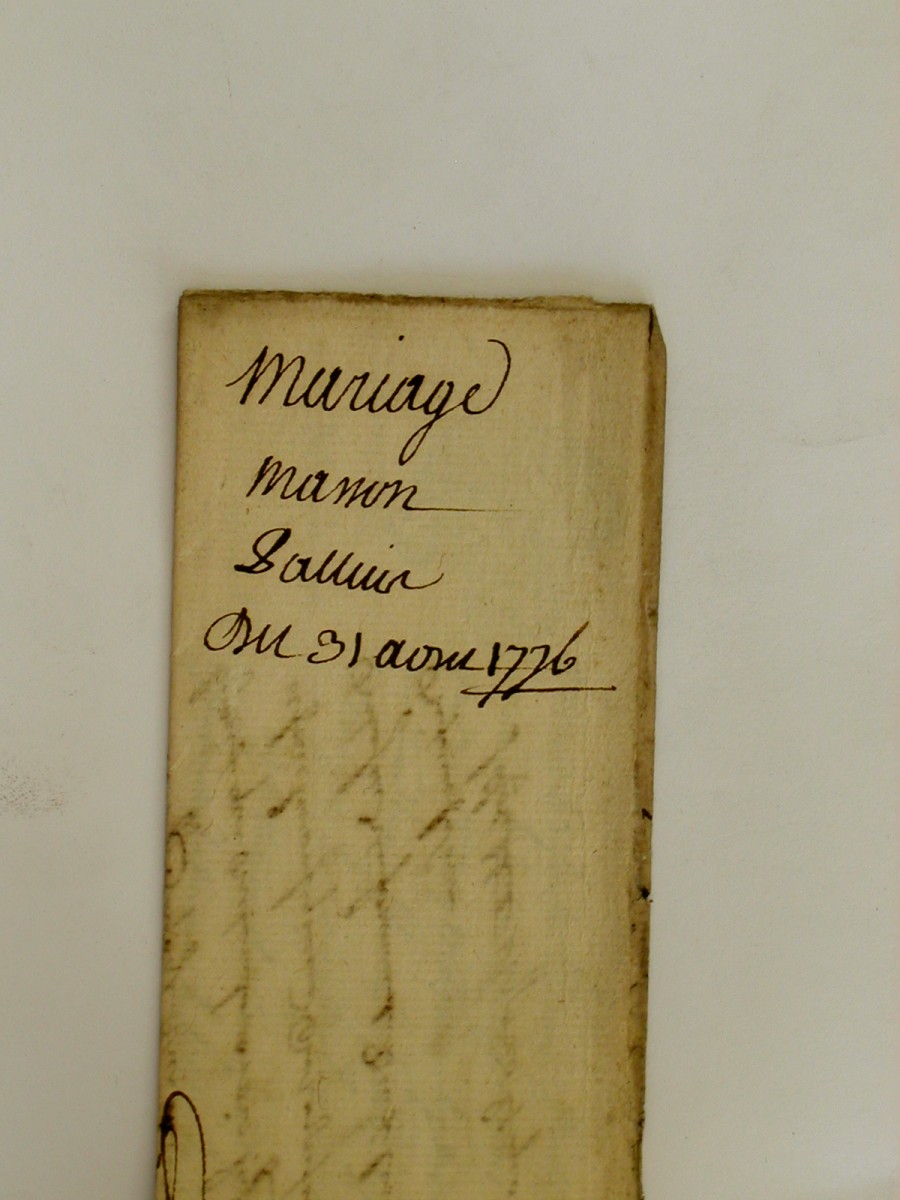 Mariage
Masson
Pallier
Du 31 aout 1776